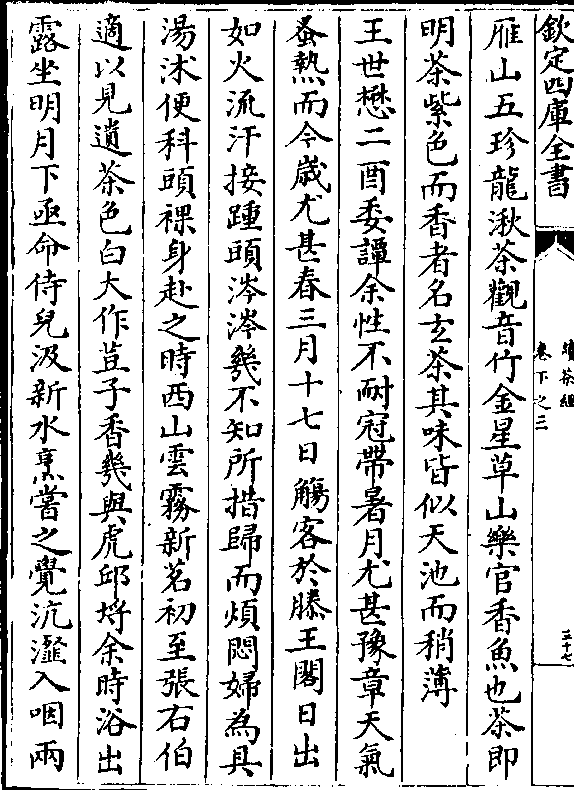 欽定四庫全書
續茶經
卷下之三
三十七
雁山五珍龍湫茶觀音竹金星草山樂官香魚也茶即
明茶紫色而香者名玄茶其味皆似天池而稍薄
王世懋二酉委譚余性不耐冠帶暑月尤甚豫章天氣
蚤熱而今歲尤甚春三月十七日觴客於滕王閣日出
如火流汗接踵頭涔涔幾不知所措歸而煩悶婦為具
湯沐便科頭裸身赴之時西山雲霧新茗初至張右伯
適以見遺茶色白大作荳子香幾與虎邱埒余時浴出
露坐明月下亟命侍兒汲新水烹嘗之覺沆瀣入咽兩